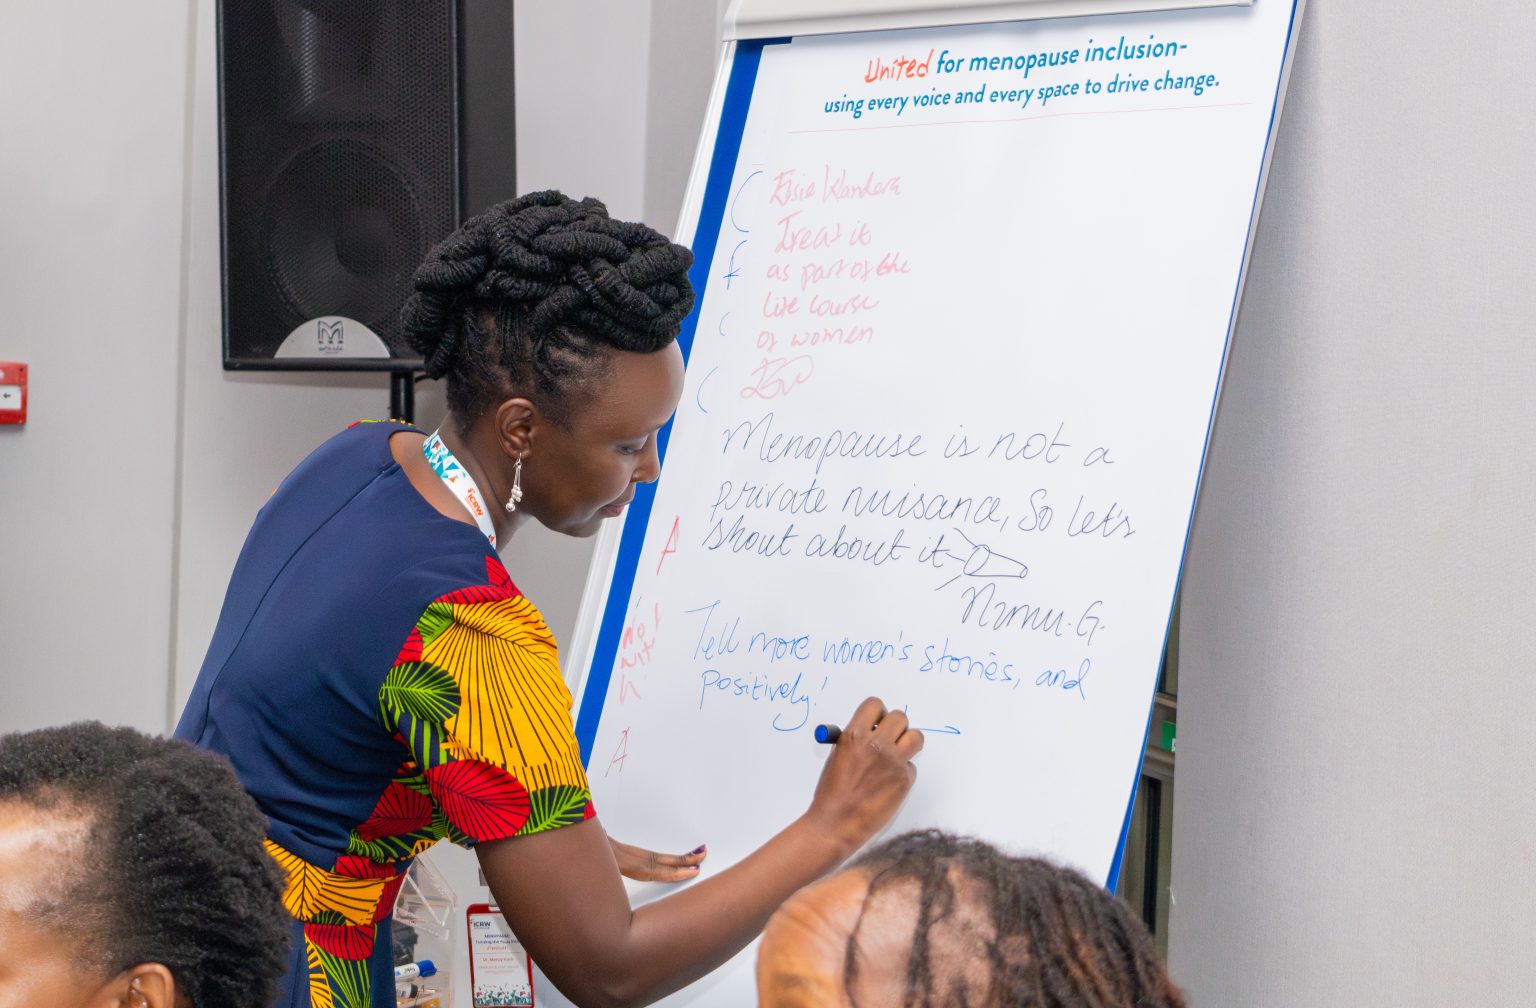 United for menopause inclusion-
using every voice and every space to drive change.
Elsie Wandera
Treat it
as part of the
life course
of women
Menopause is not a
private nuisance, So let's
shout about it
Tell more women's stories, and
positively!
ICRW
ICRW
MENOPAUSE